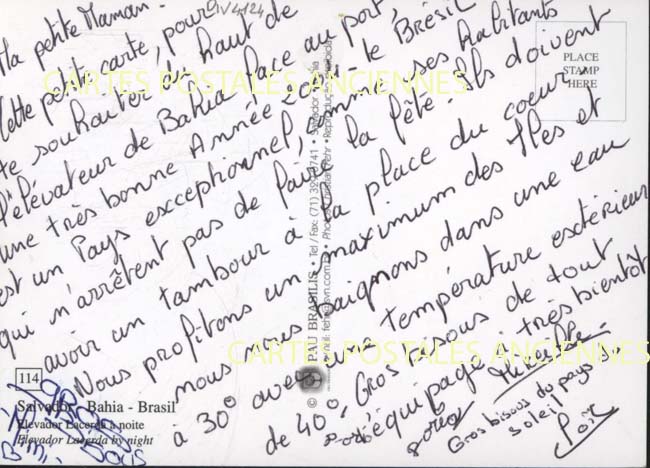 Ma petite Maman.
Cette petite carte, pour
te souhaiter du haut de
l'élévateur de Bahia face au port,
une très bonne Année 2004 - le Brésil
est un Pays exceptionnel, comme ses habitants
qui n'arrêtent pas de faire la fête. Ils doivent
avoir un tambour à la place du coeur.
Nous profitons un maximum des Iles et
nous nous baignons dans une eau
à 30° avec une température extérieur
de 40°. Gros bisous de tout
l'équipage à très bientôt
Gros bisous du pays
soleil
PLACE
STAMP
HERE
114
Salvador - Bahia - Brasil
Elevador Lacerda à noite
Elevador Lacerda by night
PAU BRASILIS • Tel/Fax: (71)
CARTES POSTALES ANCIENNES
CARTES POSTALES ANCIENNES